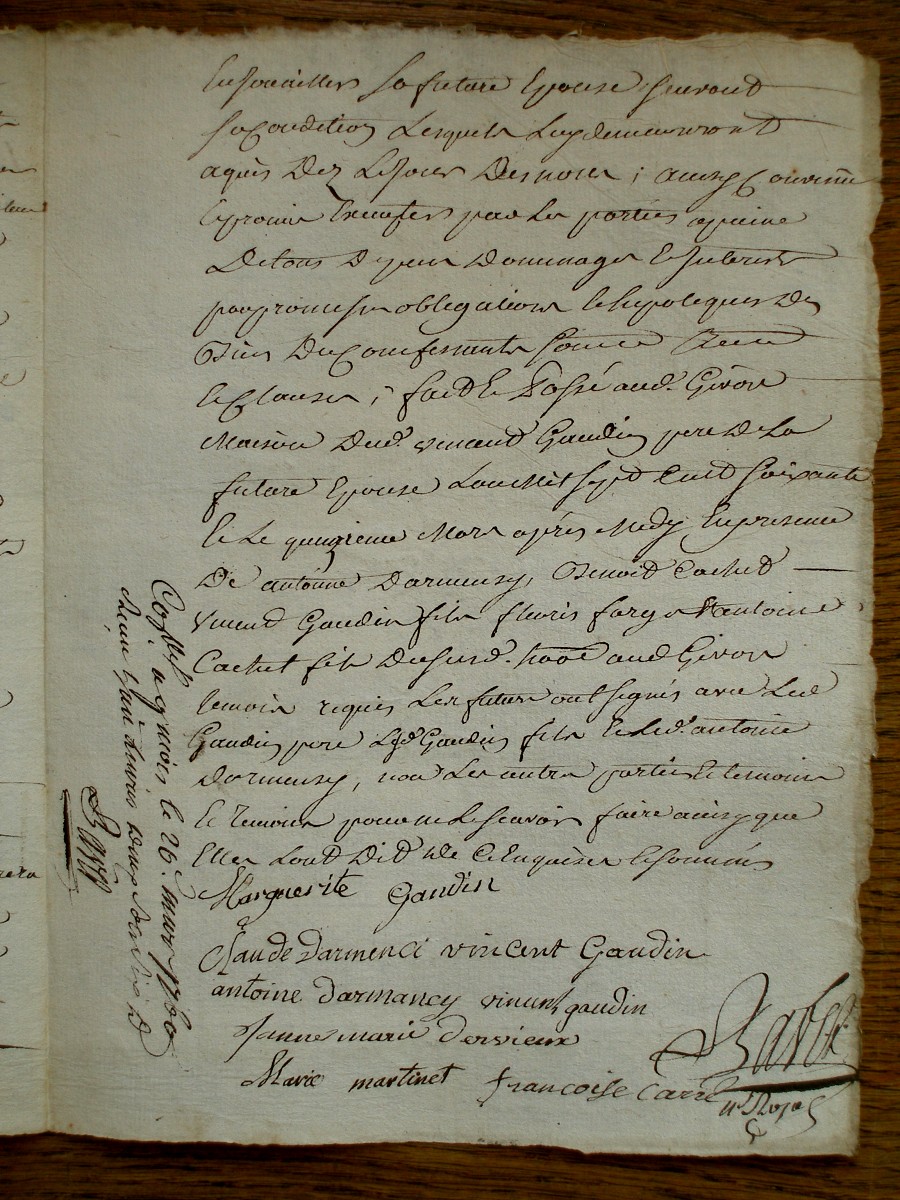 Enjouailler sa future Epouse suivant
sa Condition Lesquels Luy demeureront
aquis Dez Le jour Des noces ; ainsy Convenu
Et promis Executer par Les parties apeine
De tous Depens Dommages Et Interests
par promesses obligations Et hipoteques Des
Biens Du Confessants soumis Renon
Et Clauses ; fait Et Passé aud. Givors
Maison Dud. vincent Gaudin pere De La
future Epouse L'an Mil sept Cent soixante
Et Le quinzieme Mars après Midy, En presence
De antoinne Darmensy, Benoit Cachet
Vincent Gaudin fils fleuris farge Et antoine
Cachet fils Dususd. tous aud Givors
temoins requis Les futurs ont signés avec Led
Gaudin pere Led. Gaudin fils Et Led. antoine
Darmensy, non Les autres parties Et temoins
pour ne Le scavoir faire ainsy que
Elles L'ont Dit De Ce Enquises Et sommés
Marguerite Gaudin
Claude Darmenci vincent Gaudin
antoine Darmancy vincent gaudin
Janne marie dervieux
Marie martinet francoise Carré
Bavet
nre Royal
le 26. mars 1760